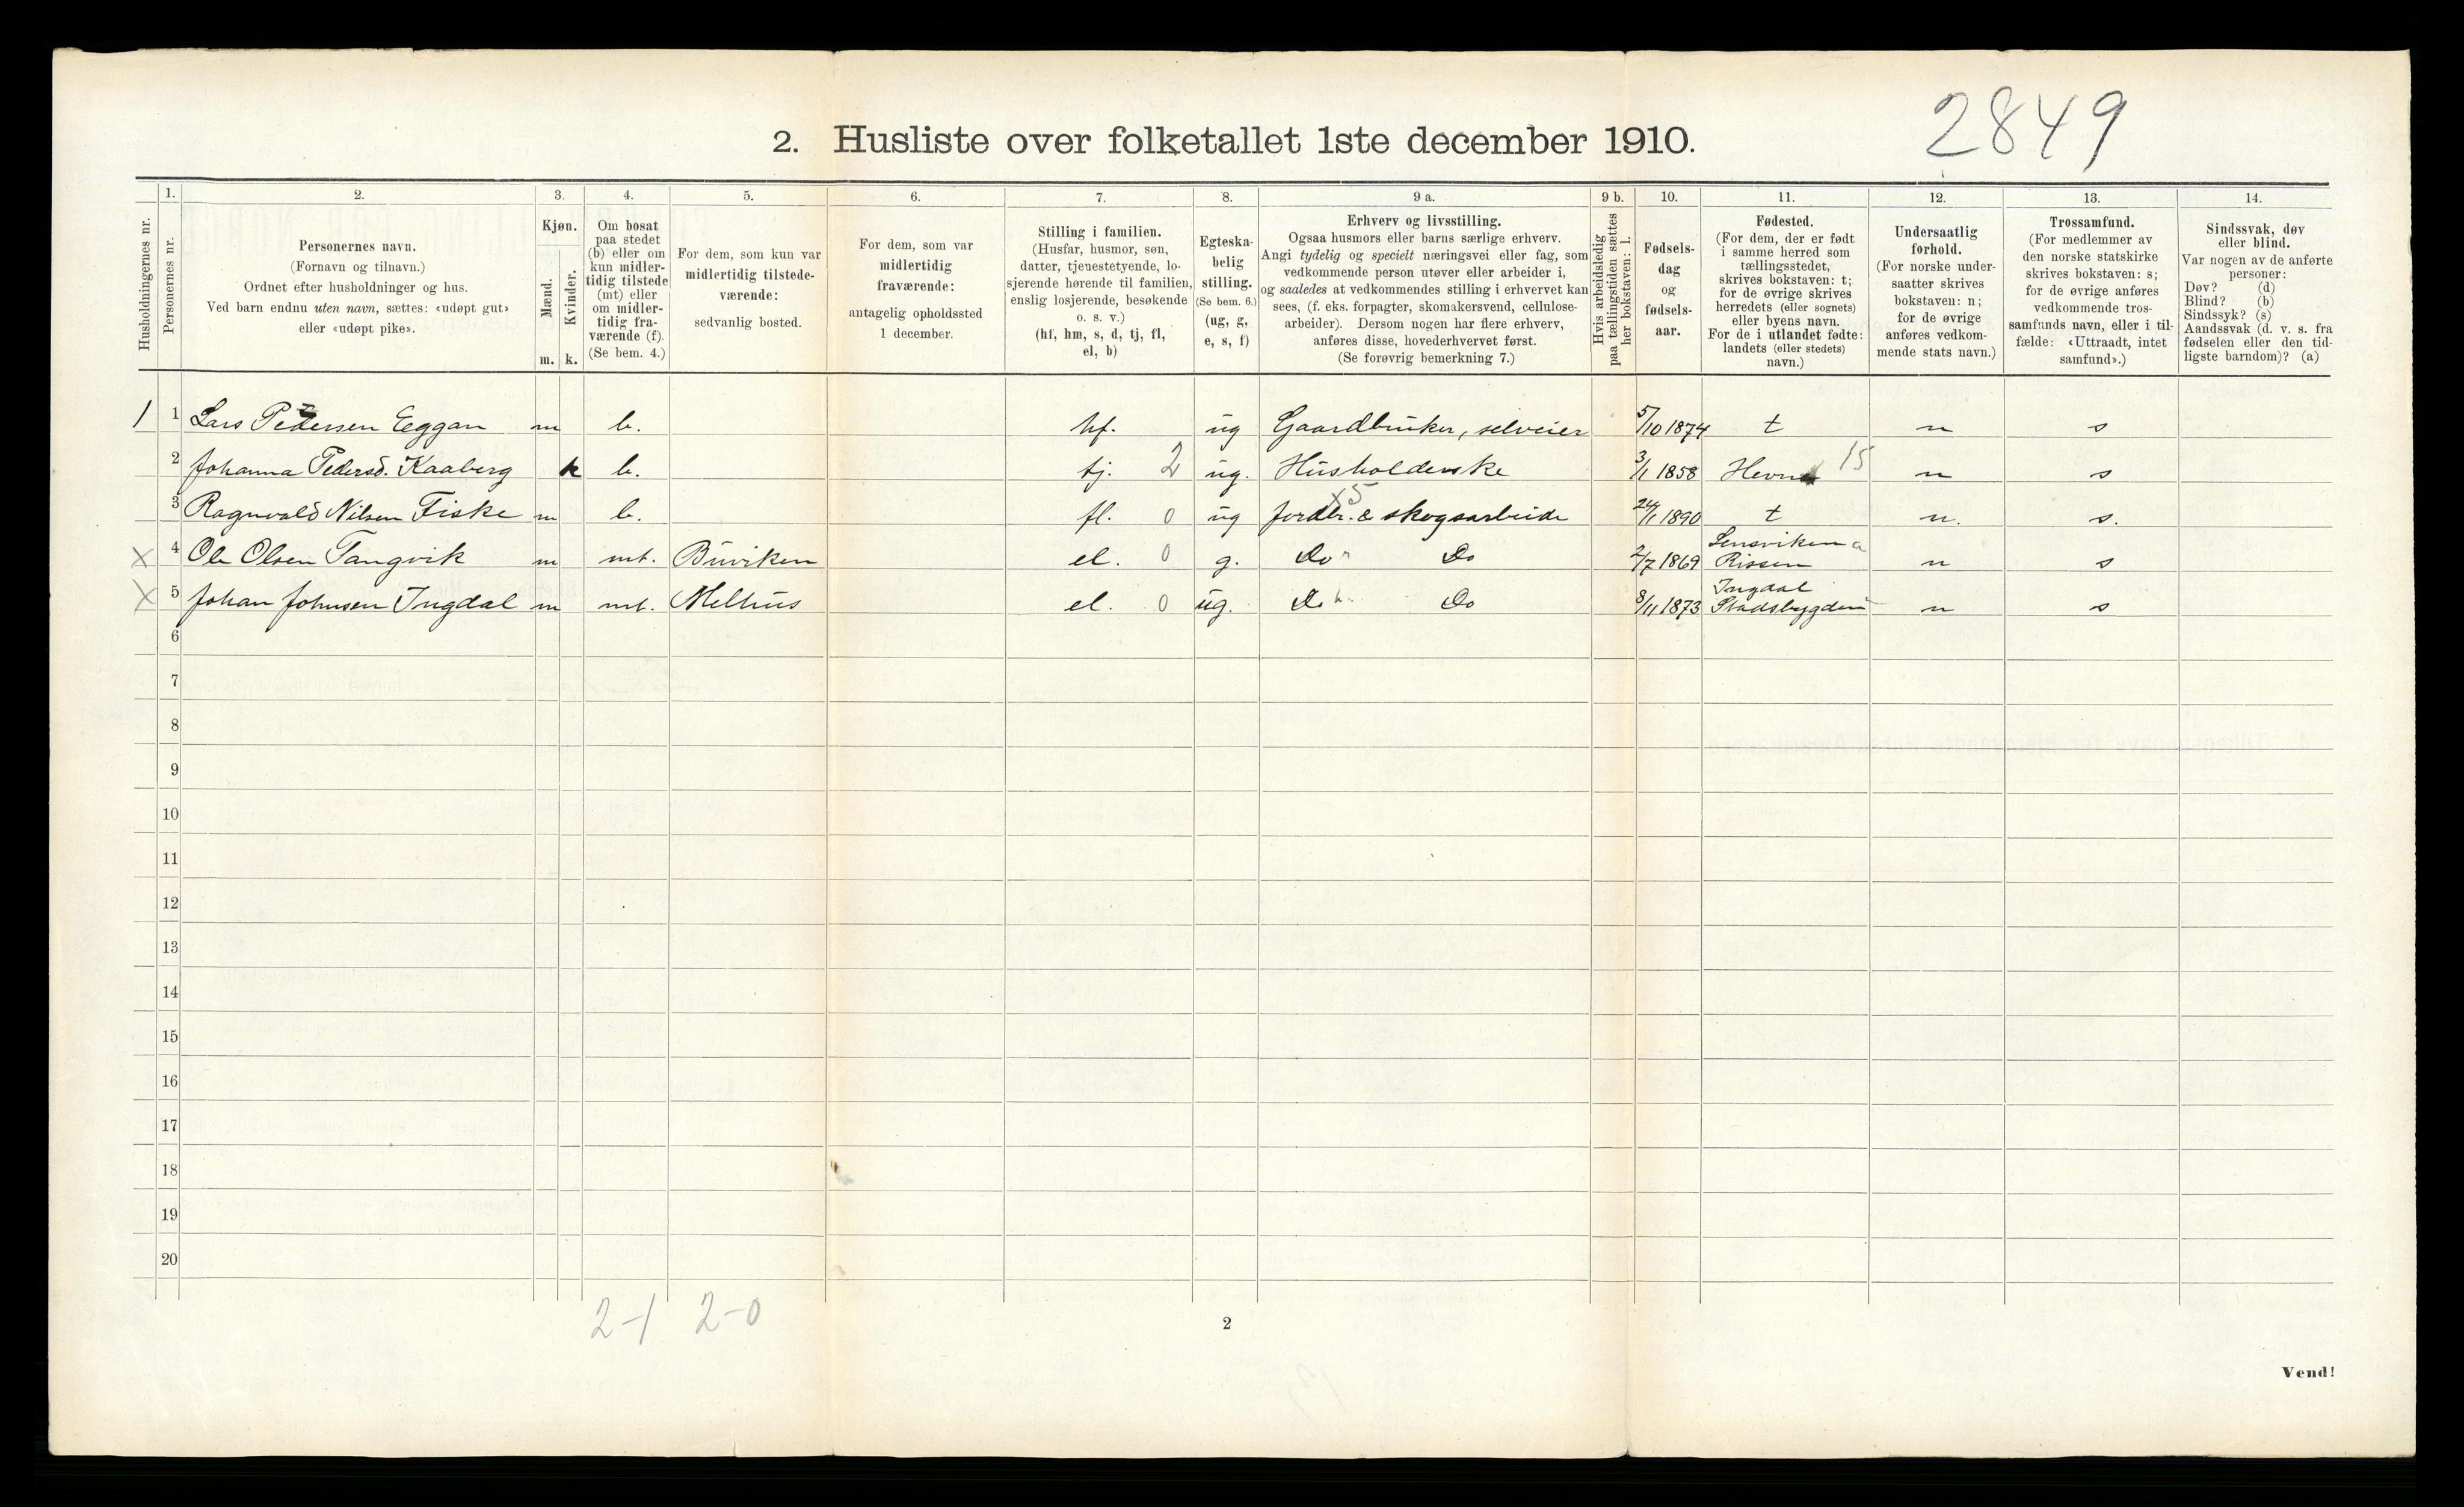 2849
2. Husliste over folketallet 1ste december 1910.
Husholdningernes nr.
1.
Personernes nr.
2.
Personernes navn.
(Fornavn og tilnavn.)
Ordnet efter husholdninger og hus.
Ved barn endnu uten navn, sættes: «udøpt gut»
eller «udøpt pike».
3.
Kjøn.
Mænd.
Kvinder.
m. k.
4.
Om bosat
paa stedet
(b) eller om
kun midler-
tidig tilstede
(mt) eller
om midler-
tidig fra-
værende (f).
(Se bem. 4.)
5.
For dem, som kun var
midlertidig tilstede-
værende:
sedvanlig bosted.
6.
For dem, som var
midlertidig
fraværende:
antagelig opholdssted
1 december.
7.
Stilling i familien.
(Husfar, husmor, søn,
datter, tjenestetyende, lo-
sjerende hørende til familien,
enslig losjerende, besøkende
o. s. v.)
(hf, hm, s, d, tj, fl,
el, b)
8.
Egteska-
belig
stilling.
(Se bem. 6.)
(ug, g,
e, s, f)
9 a.
Erhverv og livsstilling.
Ogsaa husmors eller barns særlige erhverv.
Angi tydelig og specielt næringsvei eller fag, som
vedkommende person utøver eller arbeider i,
og saaledes at vedkommendes stilling i erhvervet kan
sees, (f. eks. forpagter, skomakersvend, cellulose-
arbeider). Dersom nogen har flere erhverv,
anføres disse, hovederhvervet først.
(Se forøvrig bemerkning 7.)
9 b.
Hvis arbeidsledig
paa tællingstiden sættes
her bokstaven: l.
10.
Fødsels-
dag
og
fødsels-
aar.
11.
Fødested.
(For dem, der er født
i samme herred som
tællingsstedet,
skrives bokstaven: t;
for de øvrige skrives
herredets (eller sognets)
eller byens navn.
For de i utlandet fødte:
landets (eller stedets)
navn.)
12.
Undersaatlig
forhold.
(For norske under-
saatter skrives
bokstaven: n;
for de øvrige
anføres vedkom-
mende stats navn.)
13.
Trossamfund.
(For medlemmer av
den norske statskirke
skrives bokstaven: s;
for de øvrige anføres
vedkommende tros-
samfunds navn, eller i til-
fælde: «Uttraadt, intet
samfund».)
14.
Sindssvak, døv
eller blind.
Var nogen av de anførte
personer:
Døv? (d)
Blind? (b)
Sindssyk? (s)
Aandssvak (d. v. s. fra
fødselen eller den tid-
ligste barndom)? (a)
1 1 Lars Pedersen Eggan m b. hf. ug Gaardbruker, selveier 5/10 1874 t n s
2 Johanna Pedersd. Kaaberg k b. tj. 2 ug. Husholderske 3/1 1858 Hevne 15 n s
3 Ragnvald Nilsen Fiske m b. fl. 0 ug jordbr. & skogsarbeide x5 24/1 1890 t n. s.
X 4 Ole Olsen Tangvik m mt. Buviken el. 0 g. Do " Do 2/7 1869 Lensviken a Rissen n s
X 5 Johan Johnsen Ingdal m mt. Melhus el. 0 ug. Do " Do 8/11 1873 Ingdal Stadsbygden n s
6
7
8
9
10
11
12
13
14
15
16
17
18
19
20
2-1 2-0
2
Vend!